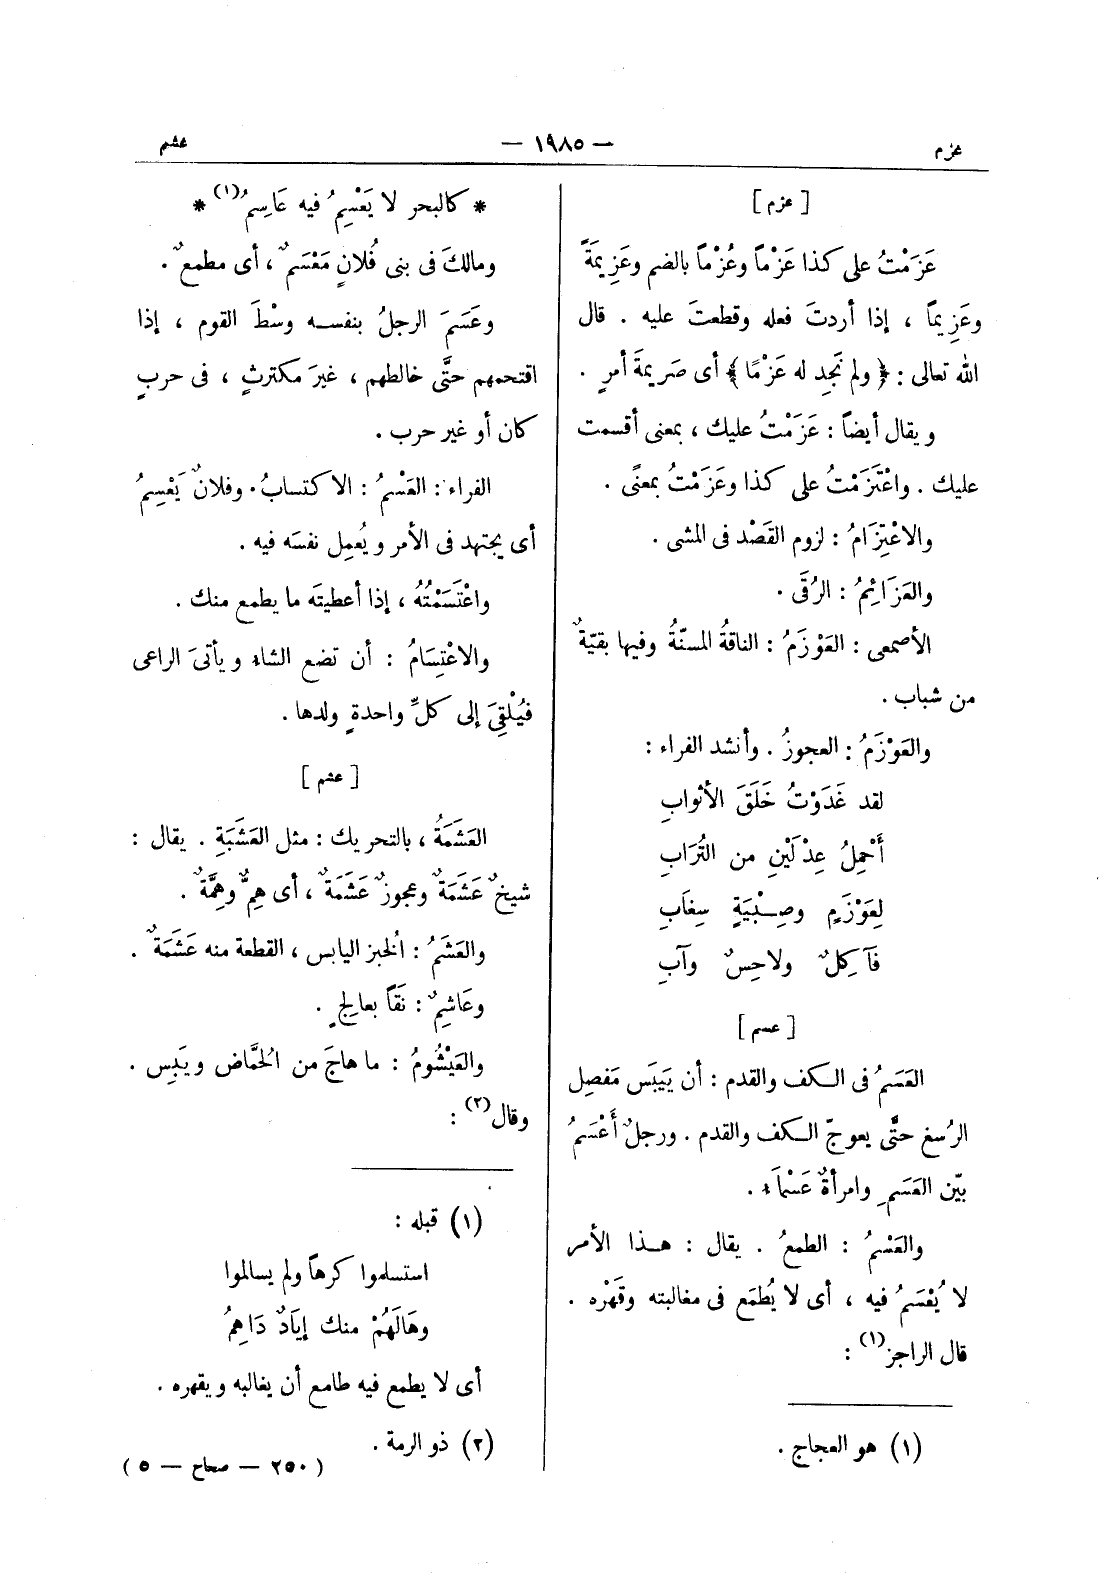 عزم
— ١٩٨٥ —
عشم
[ عزم ]
عَزَمْتُ على كذا عَزْماً وعُزْماً بالضم وعَزِيمَةً
وعَزِيماً ، إذا أردتَ فعله وقطعتَ عليه . قال
الله تعالى : ﴿ ولم نَجِد له عَزْمًا ﴾ أى صَرِيمةَ أمرٍ .
ويقال أيضاً : عَزَمْتُ عليك ، بمعنى أقسمت
عليك . واعْتَزَمْتُ على كذا وعَزَمْتُ بمعنًى .
والاعْتِزَامُ : لزوم القَصْد فى المشى .
والعَزَائِمُ : الرُقَى .
الأصمعى : العَوْزَمُ : الناقةُ المسنّةُ وفيها بقيّةٌ
من شباب .
والعَوْزَمُ : العجوزُ . وأنشد الفراء :
لقد غَدَوْتُ خَلَقَ الأثوابِ
أَحْمِلُ عِدْلَيْنِ من التُرَابِ
لِعَوْزَمٍ وصِبْيَةٍ سِغَابِ
فَآكِلٌ ولاحِسٌ وآبِ
[ عسم ]
العَسَمُ فى الكف والقدم : أن يَيبَس مَفصِل
الرُسغ حتَّى يعوجّ الكف والقدم . ورجلٌ أَعْسَمُ
بيّن العَسَمِ وامرأةٌ عَسْمَاء .
والعَسْمُ : الطمعُ . يقال : هذا الأمر
لا يُعْسَمُ فيه ، أى لا يُطمَع فى مغالبته وقَهْره .
قال الراجز(١) :
(١) هو العجاج .
* كالبحر لا يَعْسِمُ فيه عَاسِمُ(١) *
ومالكَ فى بنى فُلانٍ مَعْسَمٌ ، أى مطمعٌ .
وعَسَمَ الرجلُ بنفسه وسْطَ القوم ، إذا
اقتحمهم حتَّى خالطهم ، غيرَ مكترثٍ ، فى حربٍ
كان أو غير حرب .
الفراء : العَسْمُ : الاكتسابُ . وفلانٌ يَعْسِمُ
أى يجتهد فى الأمر ويُعمِل نفسَه فيه .
واعْتَسَمْتُهُ ، إذا أعطيتَه ما يطمع منك .
والاعْتِسَامُ : أن تضع الشاء ويأتىَ الراعى
فيُلْقِىَ إلى كلِّ واحدةٍ ولدها .
[ عشم ]
العَشَمَةُ ، بالتحريك : مثل العَشَبَةِ . يقال :
شيخٌ عَشَمَةٌ وعجوزٌ عَشَمَةٌ ، أى هِمٌّ وهِمَّةٌ .
والعَشَمُ : الُخبز اليابس ، القطعة منه عَشَمَةٌ .
وعَاشِمٌ : نَقًا بعالِجٍ .
والعَيْشُومُ : ما هاجَ من الُحمَّاض ويَبِس .
وقال(٢) :
(١) قبله :
استسلموا كرهاً ولم يسالموا
وهَالَهُمْ منك إيَادٌ دَاهِمُ
أى لا يطمع فيه طامع أن يغالبه ويقهره .
(٢) ذو الرمة .
( ٢٥٠ — صحاح — ٥ )